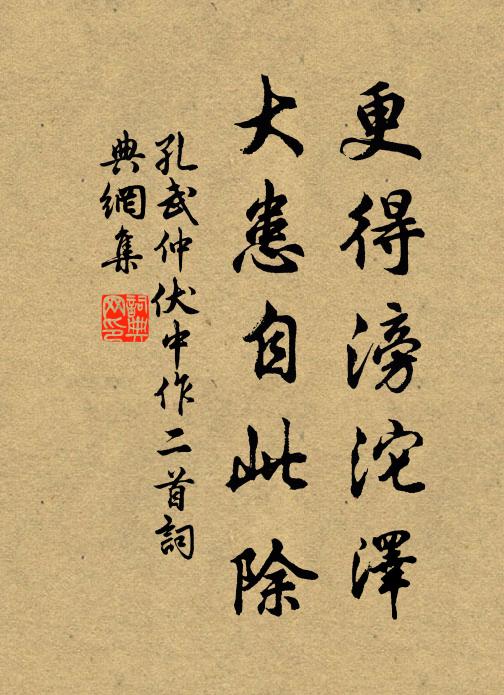 更得滂沱澤
大患自此除
孔武仲伏中作二首詞
典網集
詞典網印